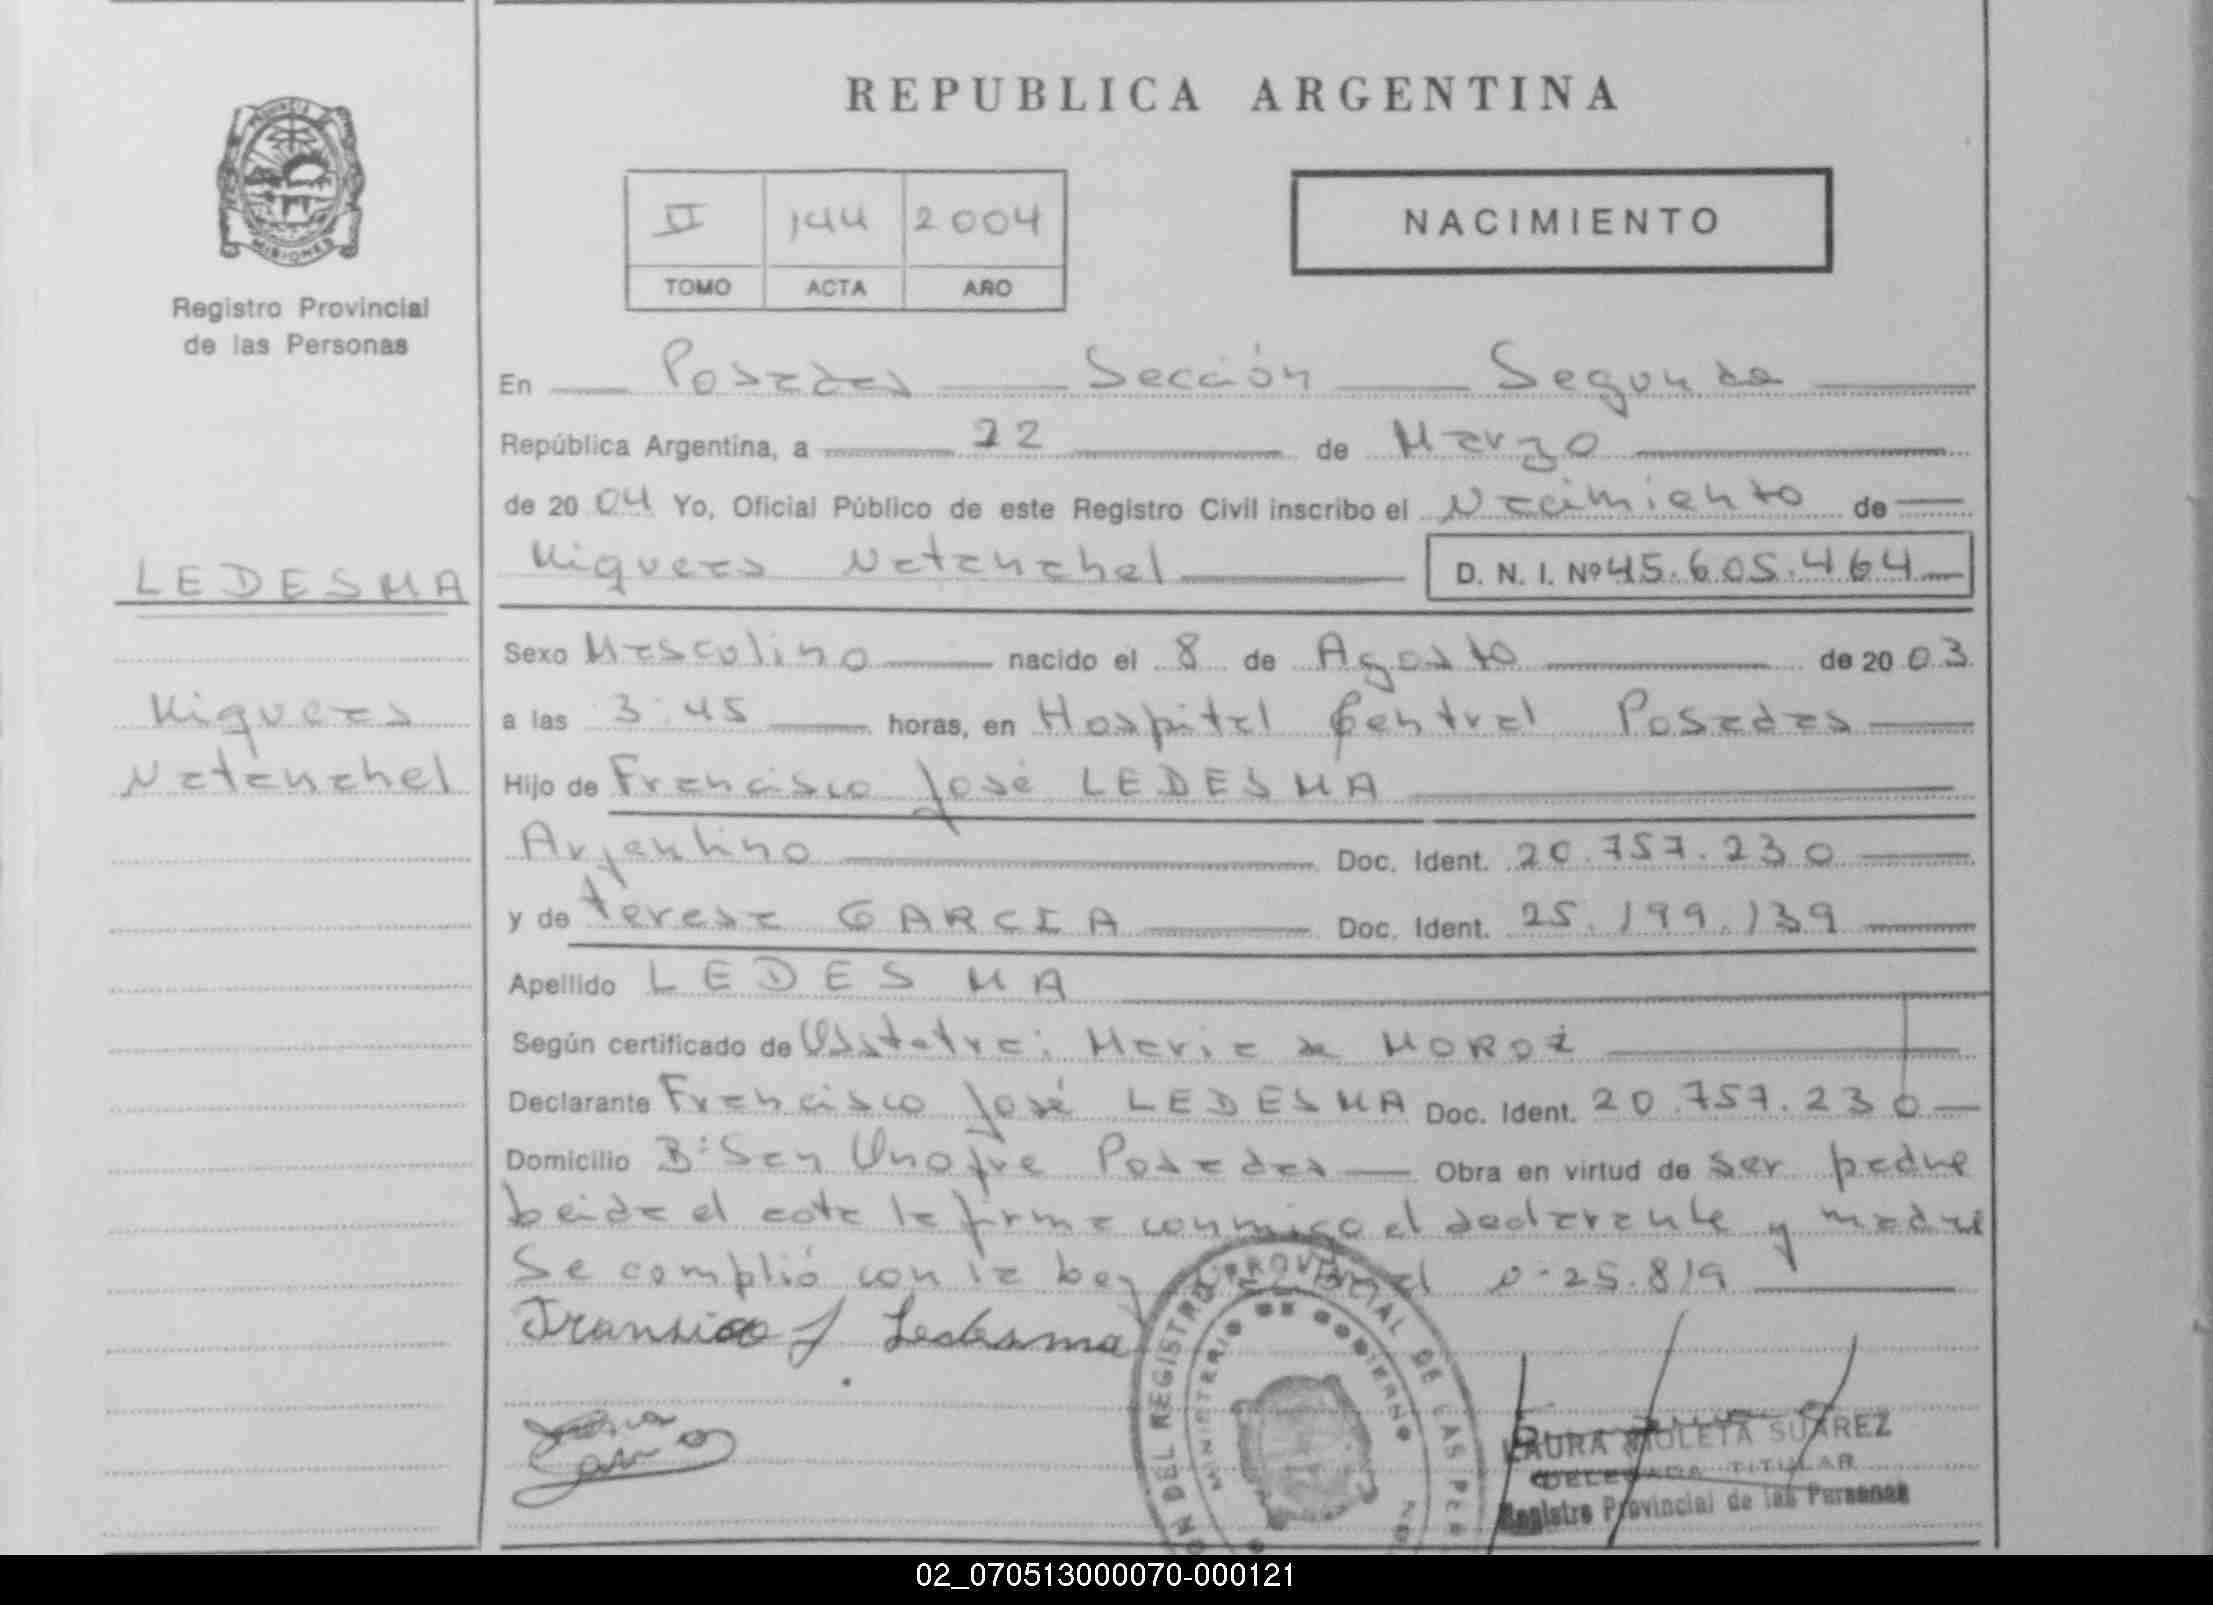 REPUBLICA ARGENTINA
PROVINCIA
MISIONES
Registro Provincial
de las Personas
II 144 2004
TOMO ACTA AÑO
NACIMIENTO
En Posadas Sección Segunda
República Argentina, a 22 de Marzo
de 2004 Yo, Oficial Público de este Registro Civil inscribo el Nacimiento de
Niqueas Natanahel D. N. I. Nº 45.605.464
LEDESMA
Niqueas
Natanahel
Sexo Masculino nacido el 8 de Agosto de 2003
a las 3:45 horas, en Hospital Central Posadas
Hijo de Francisco José LEDESMA
Argentino Doc. Ident. 20.757.230
y de teresa GARCIA Doc. Ident. 25.199.139
Apellido LEDESMA
Según certificado de Obstetra: Maria MOROZ
Declarante Francisco José LEDESMA Doc. Ident. 20.757.230
Domicilio Bº San Onofre Posadas Obra en virtud de ser padre
Leida el acta la firma conmigo el declarante y madre
Se complió con la Ley 25.819
Francisco J Ledesma
DEL REGISTRO PROVINCIAL DE LAS
MINISTERIO DE GOBIERNO
LAURA VIOLETA SUAREZ
DELEGADA TITULAR
Registro Provincial de las Personas
02_070513000070-000121